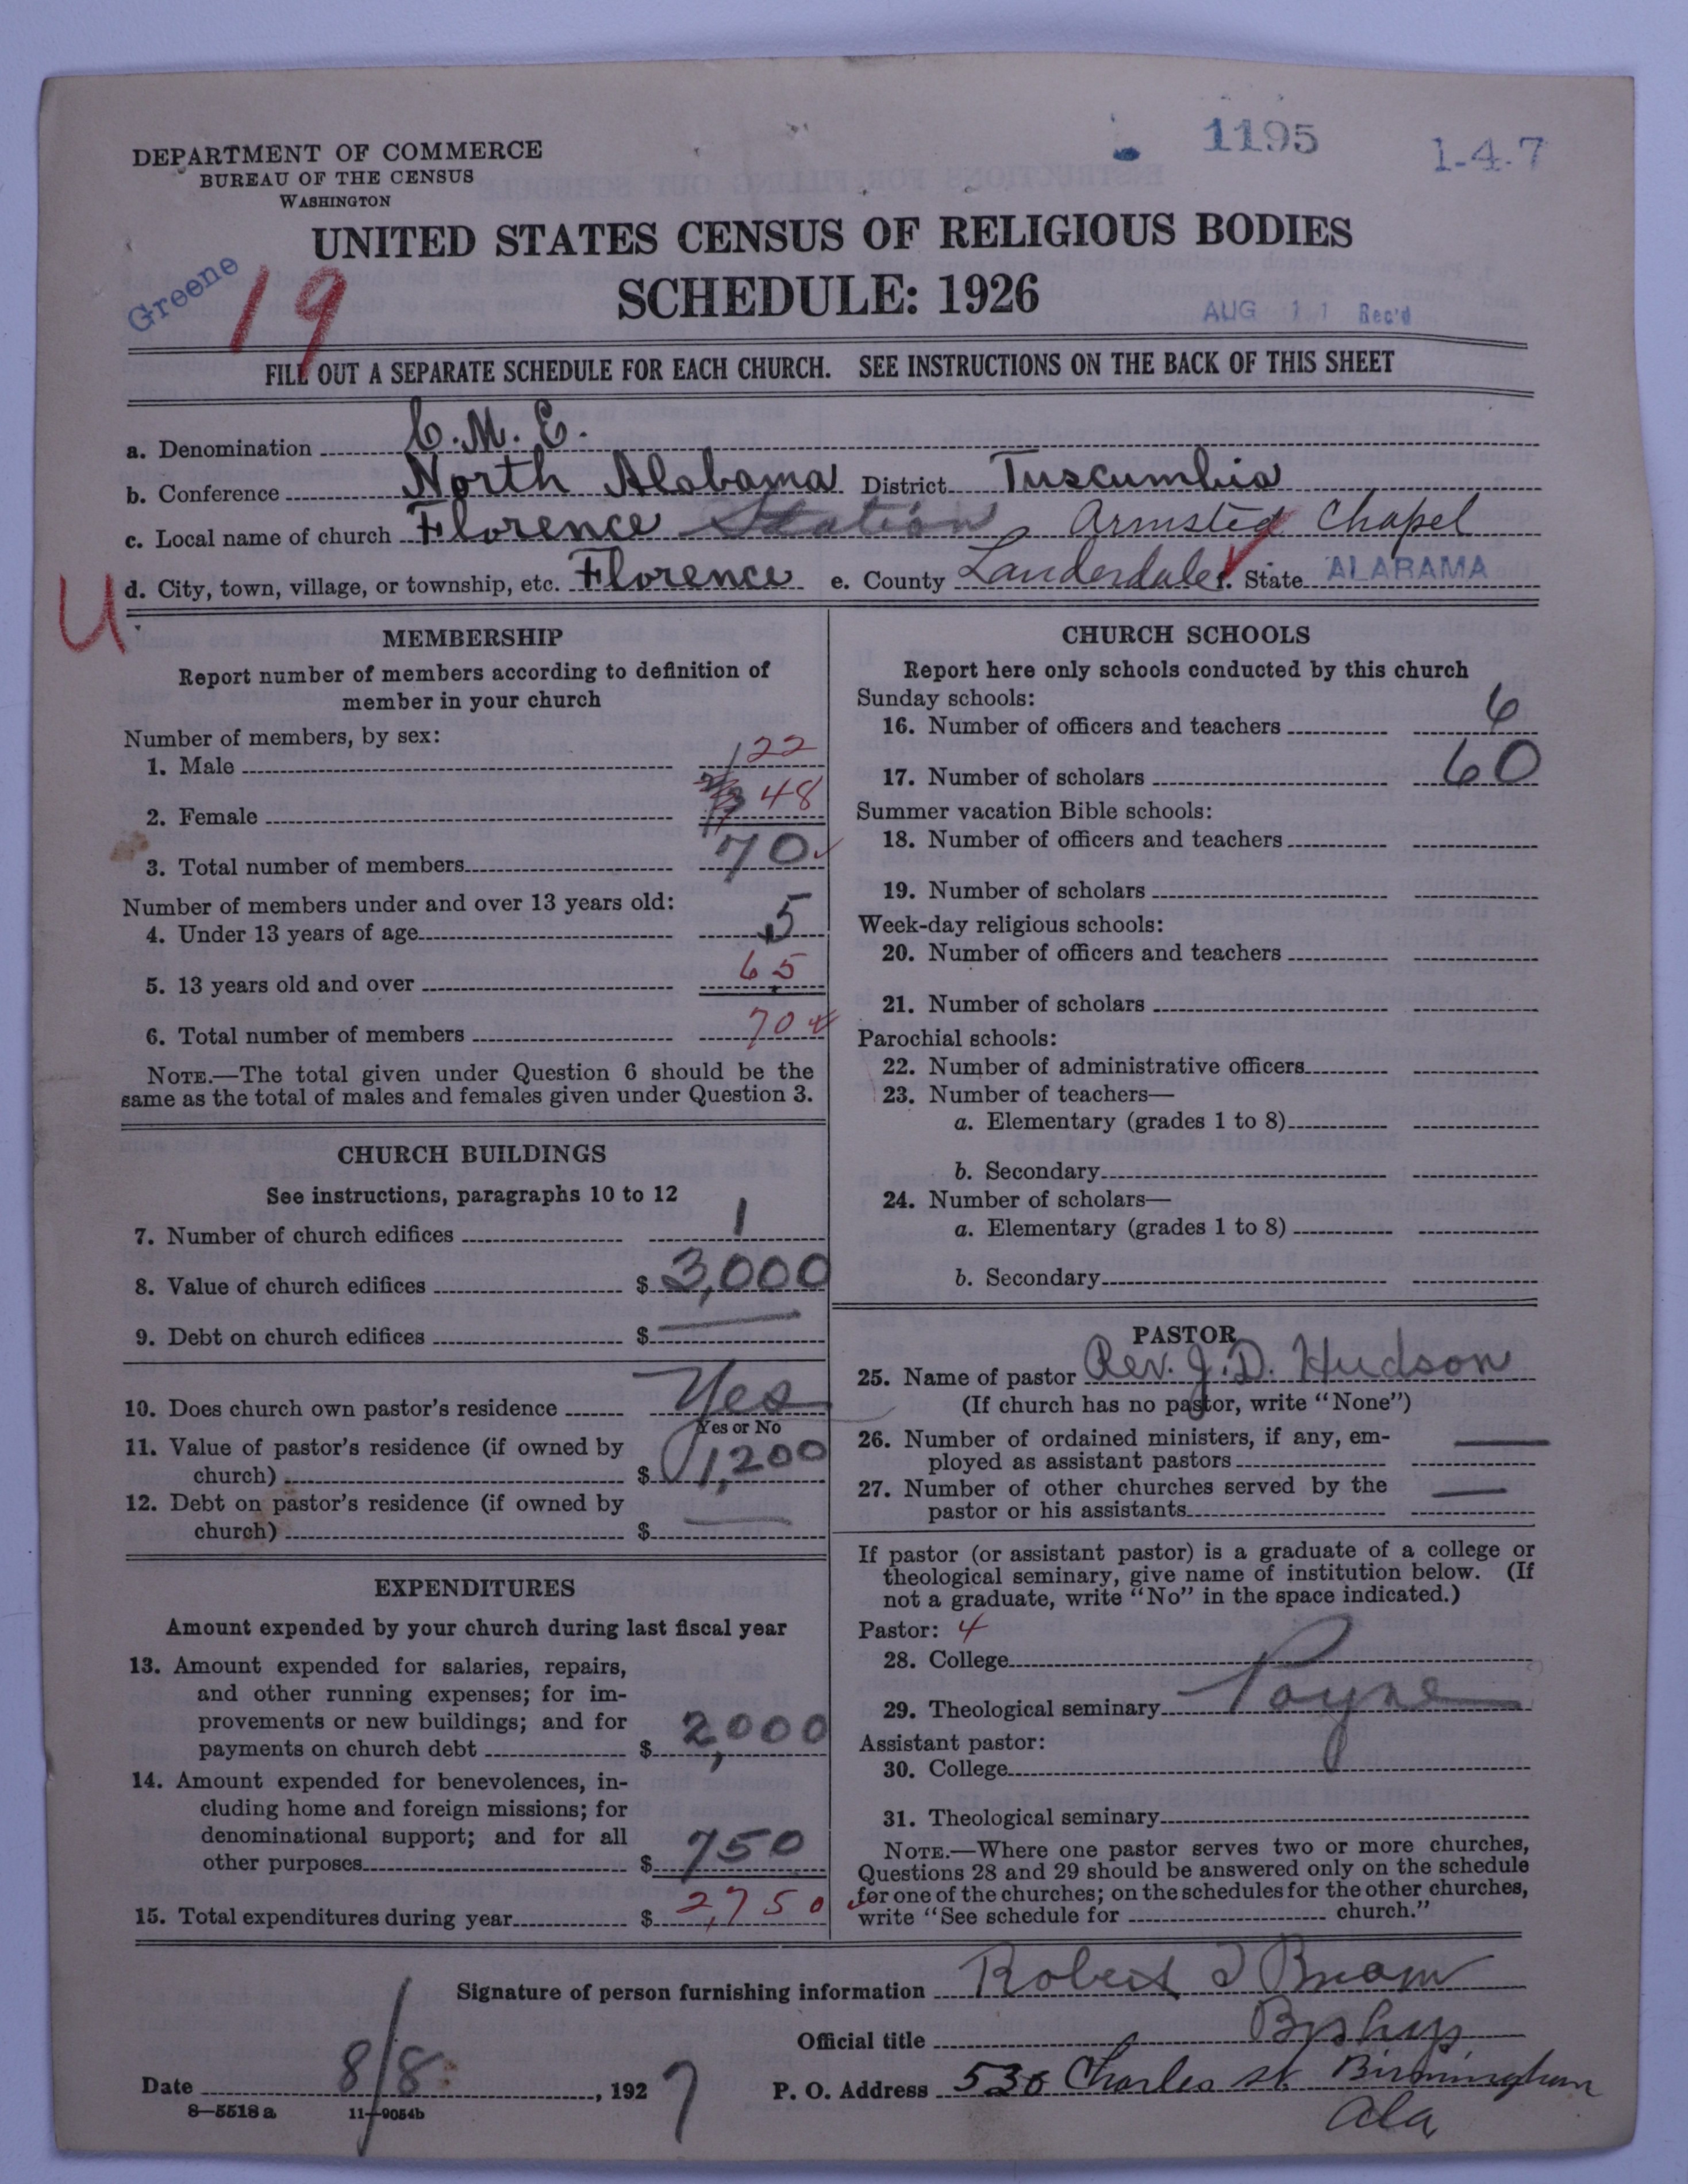 1195
1-4-7
DEPARTMENT OF COMMERCE
BUREAU OF THE CENSUS
WASHINGTON
UNITED STATES CENSUS OF RELIGIOUS BODIES
SCHEDULE: 1926
Greene
19
AUG 11 Rec'd
FILL OUT A SEPARATE SCHEDULE FOR EACH CHURCH. SEE INSTRUCTIONS ON THE BACK OF THIS SHEET
a. Denomination C.M.E.
b. Conference North Alabama District Tuscumbia
c. Local name of church Florence Station, Armsted Chapel
U
d. City, town, village, or township, etc. Florence e. County Lauderdale f. State ALABAMA
MEMBERSHIP
Report number of members according to definition of
member in your church
Number of members, by sex:
1. Male 22
2. Female 48
3. Total number of members 70
Number of members under and over 13 years old:
4. Under 13 years of age 5
5. 13 years old and over 65
6. Total number of members 70
NOTE.—The total given under Question 6 should be the
same as the total of males and females given under Question 3.
CHURCH BUILDINGS
See instructions, paragraphs 10 to 12
7. Number of church edifices 1
8. Value of church edifices $ 3,000
9. Debt on church edifices $
10. Does church own pastor's residence Yes
Yes or No
11. Value of pastor's residence (if owned by
church) $ 1,200
12. Debt on pastor's residence (if owned by
church) $
EXPENDITURES
Amount expended by your church during last fiscal year
13. Amount expended for salaries, repairs,
and other running expenses; for im-
provements or new buildings; and for
payments on church debt $ 2,000
14. Amount expended for benevolences, in-
cluding home and foreign missions; for
denominational support; and for all
other purposes $ 750
15. Total expenditures during year $ 2,750
CHURCH SCHOOLS
Report here only schools conducted by this church
Sunday schools:
16. Number of officers and teachers 6
17. Number of scholars 60
Summer vacation Bible schools:
18. Number of officers and teachers
19. Number of scholars
Week-day religious schools:
20. Number of officers and teachers
21. Number of scholars
Parochial schools:
22. Number of administrative officers
23. Number of teachers—
a. Elementary (grades 1 to 8)
b. Secondary
24. Number of scholars—
a. Elementary (grades 1 to 8)
b. Secondary
PASTOR
25. Name of pastor Rev. J.D. Hudson
(If church has no pastor, write "None")
26. Number of ordained ministers, if any, em-
ployed as assistant pastors —
27. Number of other churches served by the
pastor or his assistants —
If pastor (or assistant pastor) is a graduate of a college or
theological seminary, give name of institution below. (If
not a graduate, write "No" in the space indicated.)
Pastor: 4
28. College
29. Theological seminary Payne
Assistant pastor:
30. College
31. Theological seminary
NOTE.—Where one pastor serves two or more churches,
Questions 28 and 29 should be answered only on the schedule
for one of the churches; on the schedules for the other churches,
write "See schedule for church."
Signature of person furnishing information Robert T
Official title Bishop
Date 8/8, 1927 P. O. Address 530 Charles st Birmingham
Ala
8—5518 a 11—9054b